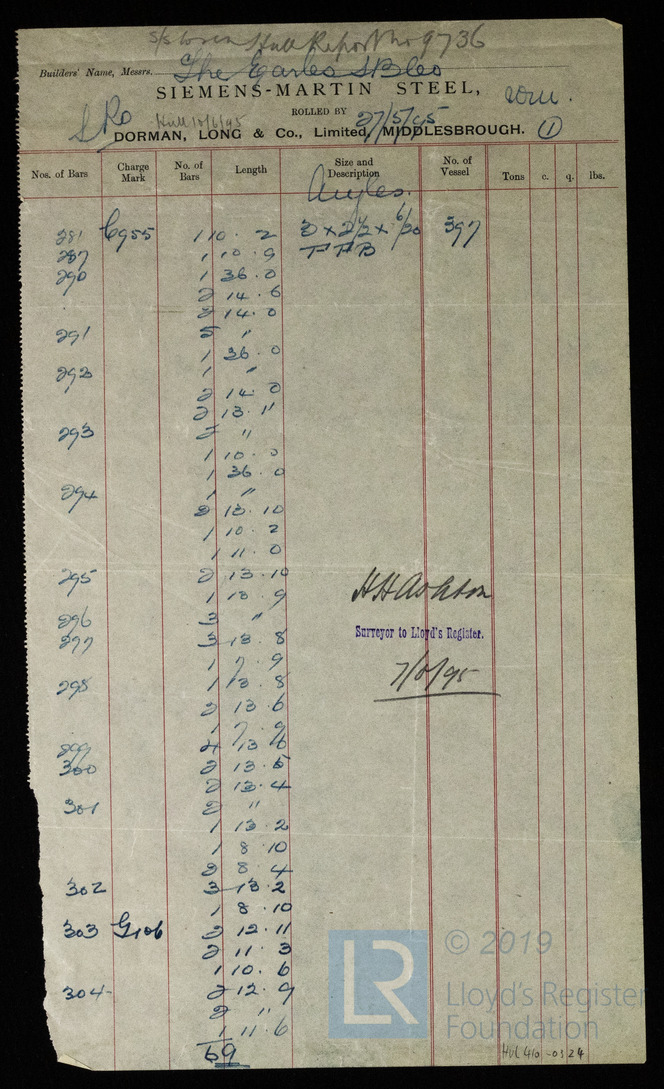 Hull Report No 9736
Builders' Name, Messrs. The Earles SB Co
SIEMENS-MARTIN STEEL,
ROLLED BY 27/5/95
Hull 10/6/95
DORMAN, LONG & Co., Limited, MIDDLESBROUGH. 1
Nos. of Bars Charge Mark No. of Bars Length Size and Description No. of Vessel Tons c. q. lbs.
Angles.
281 C955 1 10. 2 3 x 2½ x 6/20 397
287 1 10. 9
290 1 36. 0
2 14. 6
2 14. 0
291 5 "
1 36. 0
292 1 "
2 14. 0
2 13. 11
293 2 "
1 10. 0
1 36. 0
294 1 "
2 13. 10
1 10. 2
1 11. 0
295 2 13. 10
1 13. 9
296 3 "
297 3 13. 8
1 7. 9
298 1 13. 8
2 13. 6
1 7. 9
299 4 13. 6
300 2 13. 5
2 13. 4
301 2 "
1 13. 2
1 8. 10
2 8. 4
302 3 13. 2
1 8. 10
303 G106 2 12. 11
2 11. 3
1 10. 6
304 2 12. 9
2 "
1 11. 6
69
H H Ashton
Surveyor to Lloyd's Register.
7/6/95
LR
© 2019
Lloyd's Register
Foundation
HUL410-0324